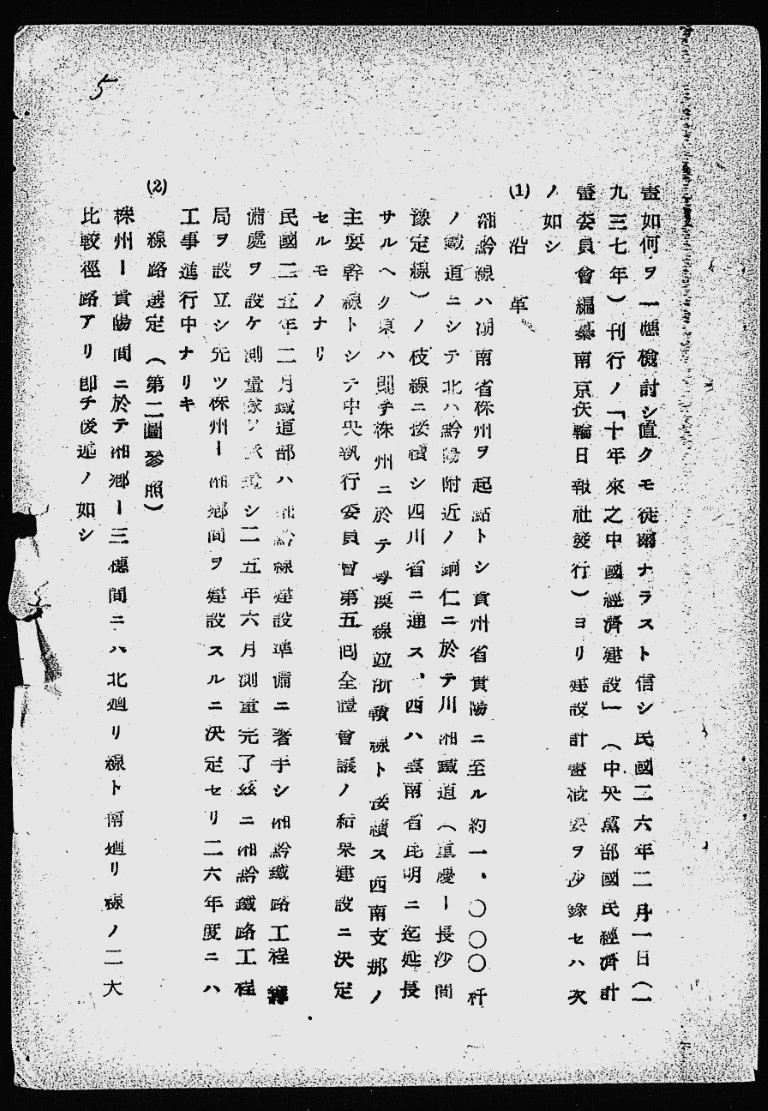 5
畫如何ヲ一應檢討シ置クモ徒爾ナラスト信シ民國二六年二月一日(一
九三七年)刊行ノ「十年來之中國經濟建設」(中央黨部國民經濟計
畫委員會編纂南京扶輪日報社發行)ヨリ建設計畫概要ヲ抄錄セハ次
ノ如シ
(1) 沿革
湘黔線ハ湖南省株州ヲ起點トシ貴州省貴陽ニ至ル約一、〇〇〇粁
ノ鐵道ニシテ北ハ黔陽附近ノ銅仁ニ於テ川湘鐵道(重慶ー長沙間
豫定線)ノ枝線ニ接續シ四川省ニ通ス、西ハ雲南省昆明ニ迄延長
サルヘク東ハ卽チ株州ニ於テ粤漢線竝浙贛線ト接續ス西南支那ノ
主要幹線トシテ中央執行委員會第五回全體會議ノ結果建設ニ決定
セルモノナリ
民國二五年二月鐵道部ハ湘黔線建設準備ニ著手シ湘黔鐵路工程籌
備處ヲ設ケ測量隊ヲ派遣シ二五年六月測量完了茲ニ湘黔鐵路工程
局ヲ設立シ先ツ株州ー湘鄕間ヲ建設スルニ決定セリ二六年度ニハ
工事進行中ナリキ
(2) 線路選定(第二圖參照)
株州ー貴陽間ニ於テ湘鄕ー三穗間ニハ北廻リ線ト南廻リ線ノ二大
比較徑路アリ卽チ後述ノ如シ